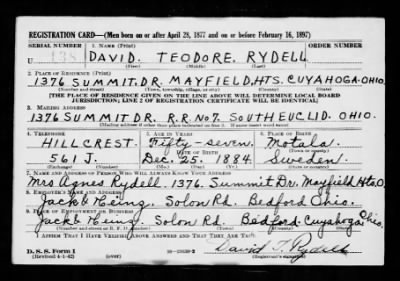 REGISTRATION CARD—(Men born on or after April 28, 1877 and on or before February 16, 1897)
SERIAL NUMBER 1. NAME (Print) ORDER NUMBER
U 138 DAVID. TEODORE. RYDELL
(First) (Middle) (Last)
2. PLACE OF RESIDENCE (Print)
1376 SUMMIT. DR. MAYFIELD. HTS. CUYAHOGA. OHIO.
(Number and street) (Town, township, village, or city) (County) (State)
[THE PLACE OF RESIDENCE GIVEN ON THE LINE ABOVE WILL DETERMINE LOCAL BOARD
JURISDICTION; LINE 2 OF REGISTRATION CERTIFICATE WILL BE IDENTICAL]
3. MAILING ADDRESS
1376 SUMMIT DR. R.R. No 7. SOUTH EUCLID. OHIO.
[Mailing address if other than place indicated on line 2. If same insert word same]
4. TELEPHONE 5. AGE IN YEARS 6. PLACE OF BIRTH
HILLCREST. Fifty-seven. Motala.
DATE OF BIRTH (Town or county)
561 J. Dec. 25. 1884. Sweden.
(Exchange) (Number) (Mo.) (Day) (Yr.) (State or country)
7. NAME AND ADDRESS OF PERSON WHO WILL ALWAYS KNOW YOUR ADDRESS
Mrs Agnes Rydell 1376. Summit Dr. Mayfield Hts. O.
8. EMPLOYER'S NAME AND ADDRESS
Jack Heinz. Solon Rd. Bedford Ohio.
9. PLACE OF EMPLOYMENT OR BUSINESS
Jack Heinz. Solon Rd. Bedford. Cuyahoga Ohio.
(Number and street or R. F. D. number) (Town) (County) (State)
I AFFIRM THAT I HAVE VERIFIED ABOVE ANSWERS AND THAT THEY ARE TRUE.
David T. Rydell
D. S. S. Form 1
(Revised 4-1-42) (over) (Registrant's signature)